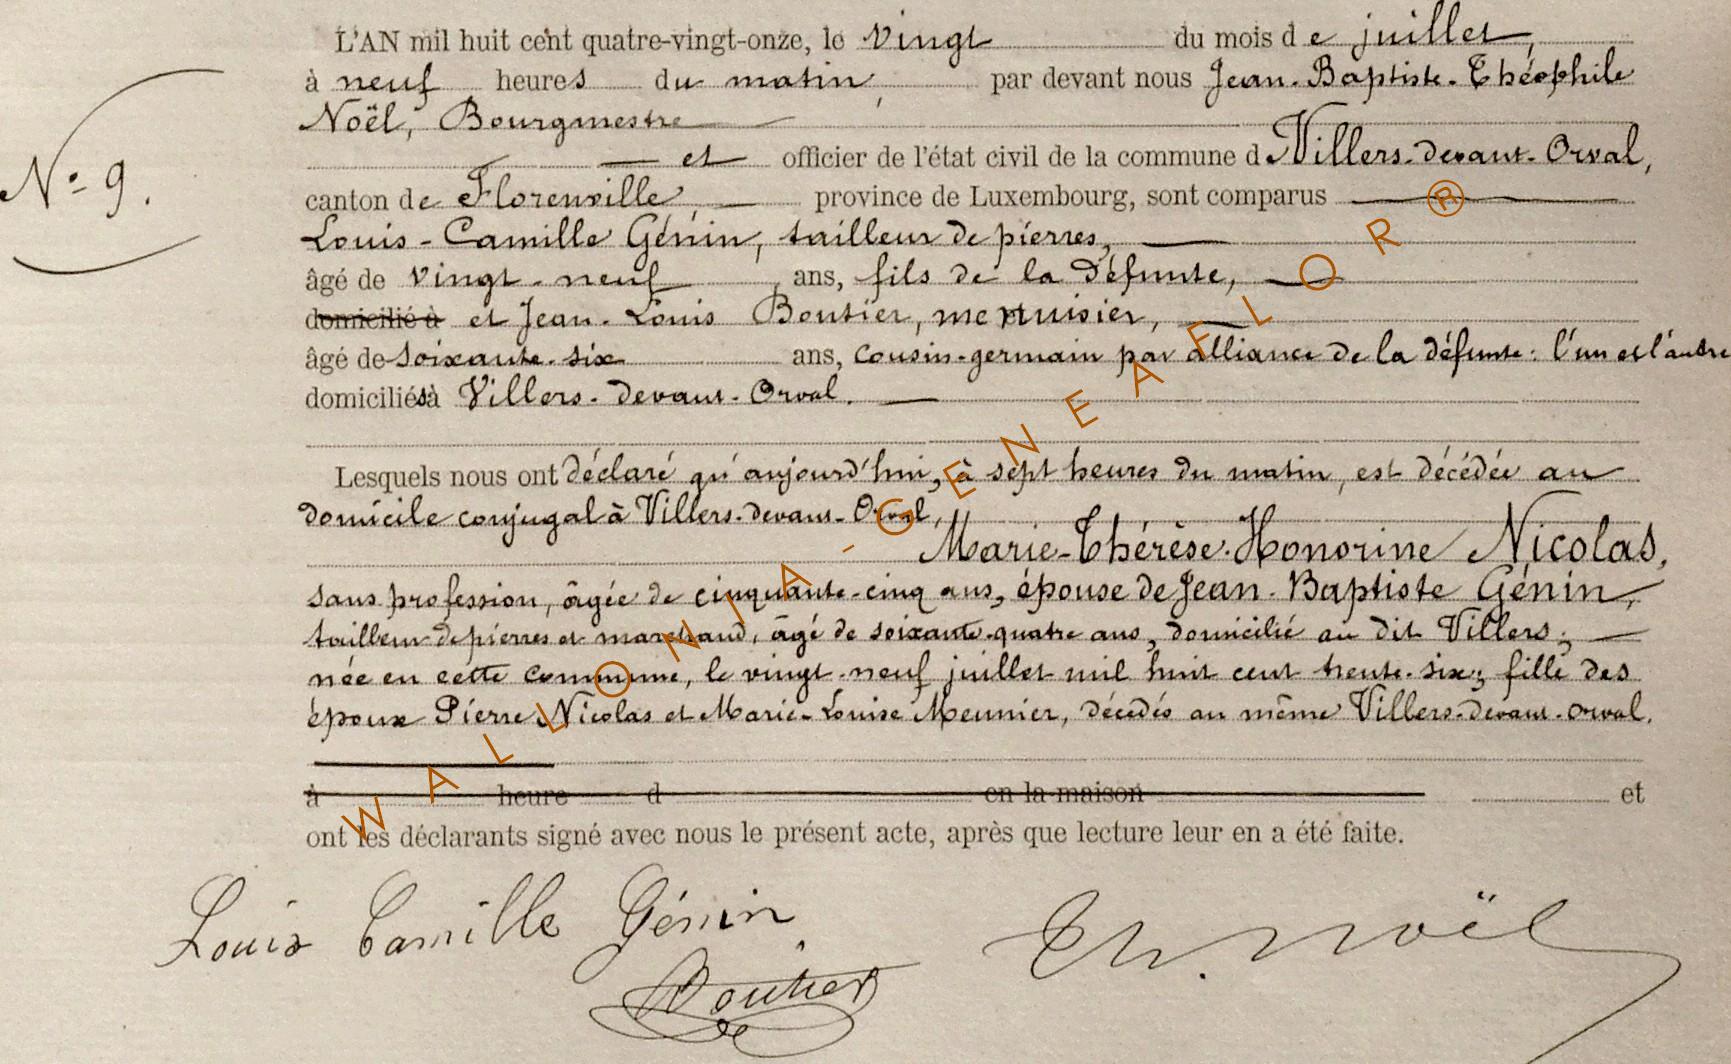 L'AN mil huit cent quatre-vingt-onze, le vingt du mois de juillet,
à neuf heures du matin, par devant nous Jean-Baptiste-Théophile
Noël, Bourgmestre
N° 9.
et officier de l'état civil de la commune de Villers-devant-Orval,
canton de Florenville province de Luxembourg, sont comparus
Louis-Camille Génin, tailleur de pierres,
âgé de vingt-neuf ans, fils de la défunte,
domicilié à et Jean-Louis Boutier, menuisier,
âgé de soixante-six ans, cousin-germain par alliance de la défunte: l'un et l'autre
domiciliés à Villers-devant-Orval.
Lesquels nous ont déclaré qu'aujourd'hui, à sept heures du matin, est décédée au
domicile conjugal à Villers-devant-Orval,
Marie-Thérèse-Honorine Nicolas,
sans profession, âgée de cinquante-cinq ans, épouse de Jean-Baptiste Génin,
tailleur de pierres et marchand, âgé de soixante-quatre ans, domicilié au dit Villers;
née en cette commune, le vingt-neuf juillet mil huit cent trente-six; fille des
époux Pierre Nicolas et Marie-Louise Meunier, décédés au même Villers-devant-Orval.
à heure d en la maison et
ont les déclarants signé avec nous le présent acte, après que lecture leur en a été faite.
Louis Camille Génin
Th. Noël
Boutier
WALLONIA-GENEAFLOR®